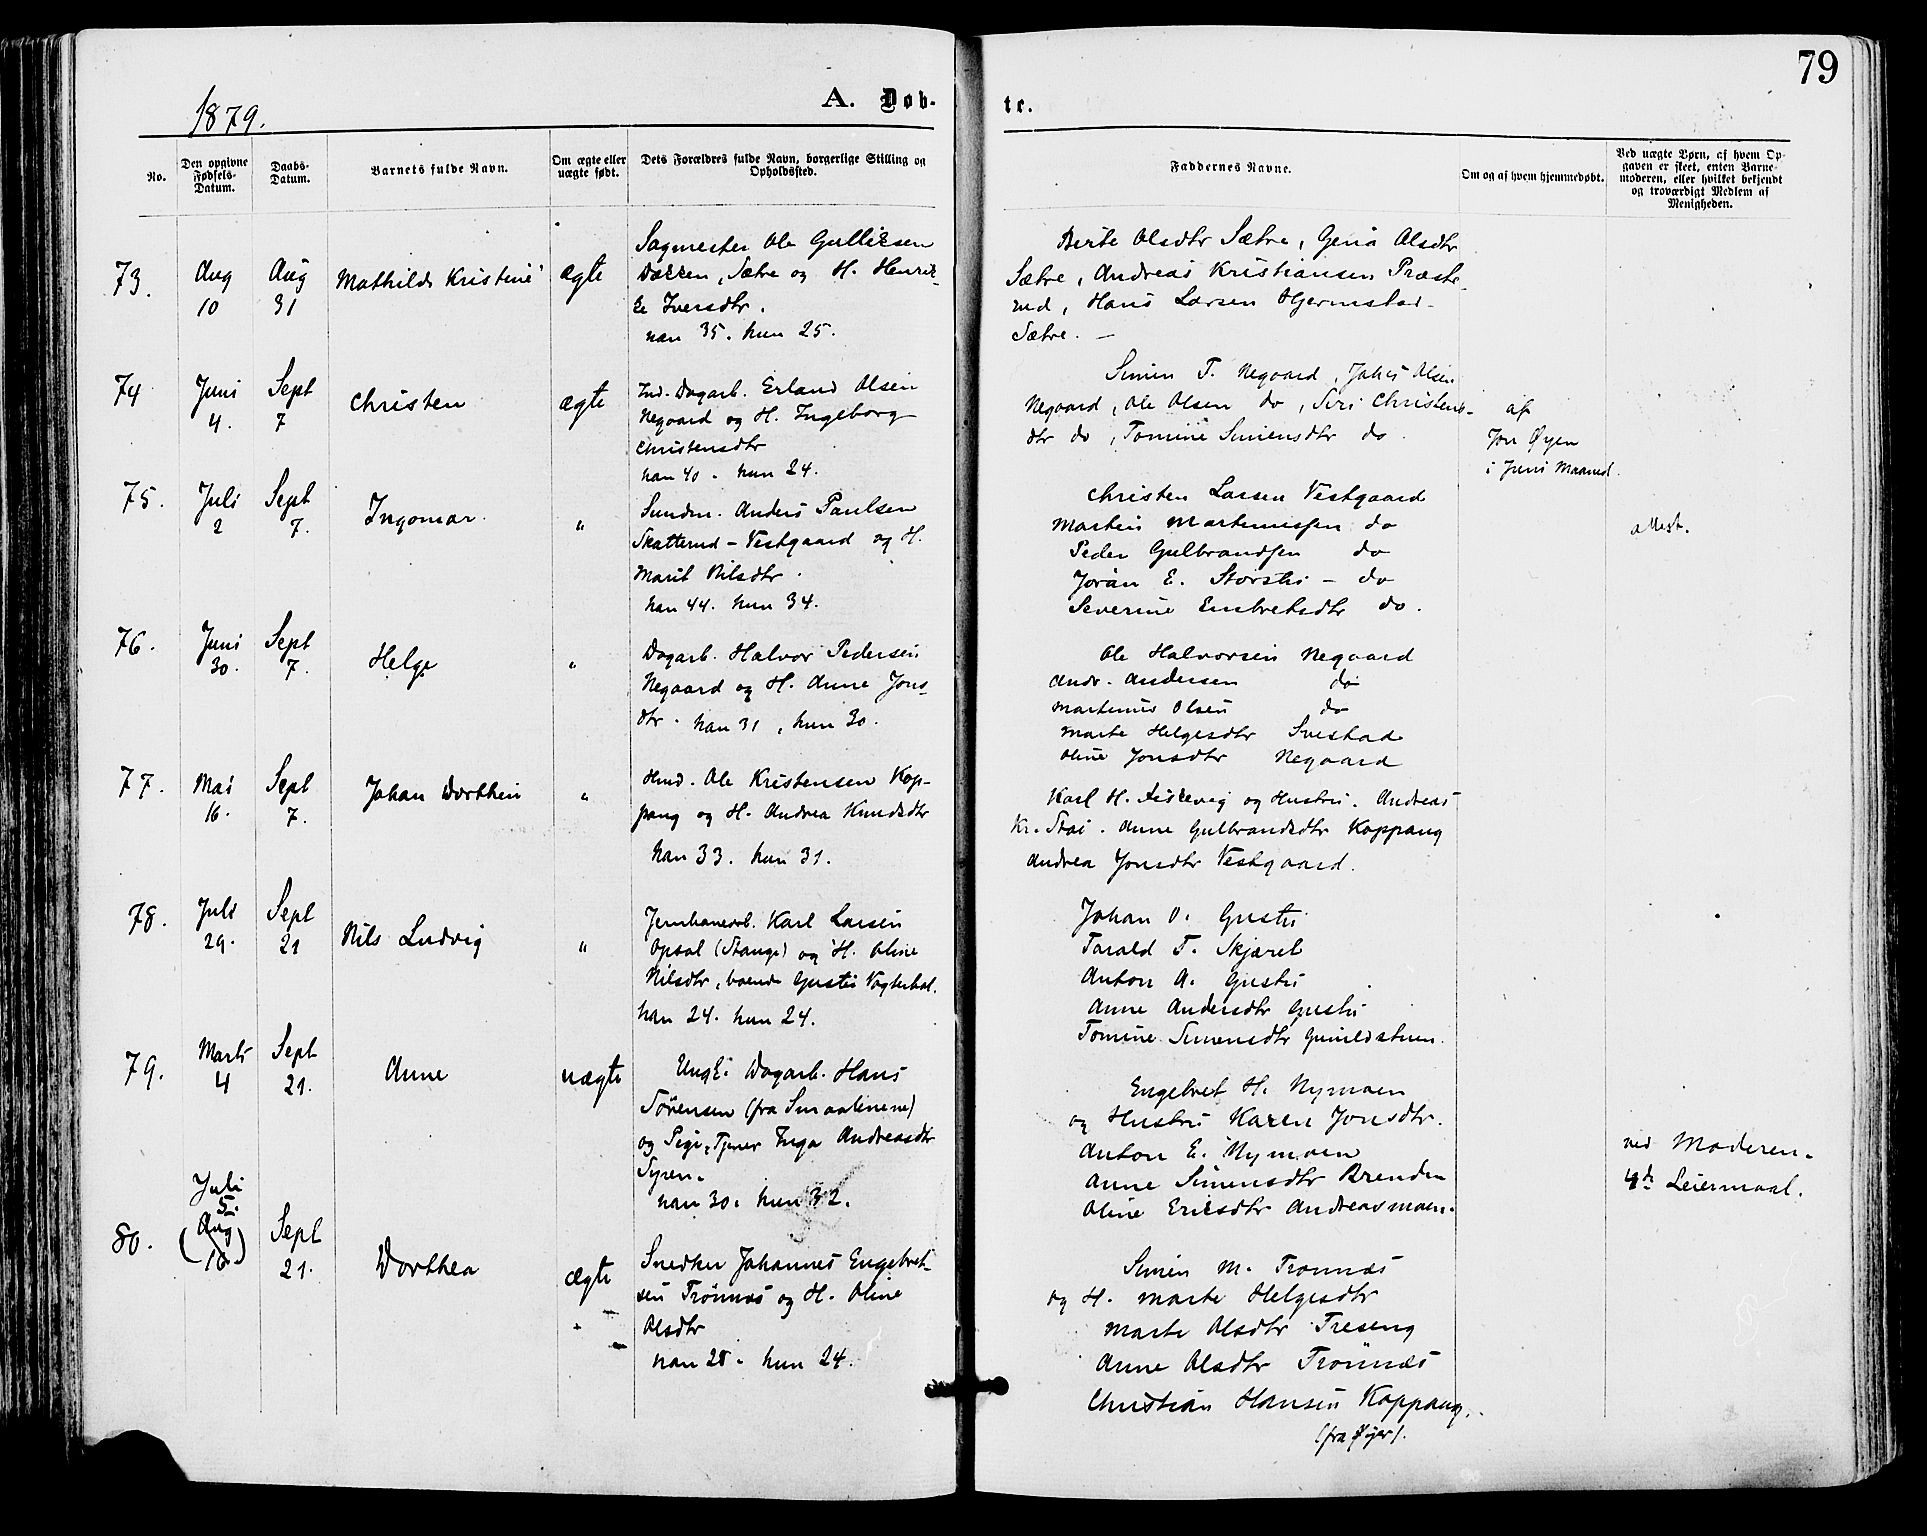 79
1879.
A. Døb-
te.
No.
Den opgivne Fødsels-Datum.
Daabs-Datum.
Barnets fulde Navn.
Om ægte eller uægte født.
Dets Forældres fulde Navn, borgerlige Stilling og Opholdssted.
Faddernes Navne.
Om og af hvem hjemmedøbt.
Ved uægte Børn, af hvem Op-
gaven er skeet, enten Barne-
moderen, eller hvilket bekjendt
og troværdigt Medlem af
Menigheden.
73.
Aug
10
Aug
31
Mathilde Kristine
ægte
Sagmester Ole Gulliksen
Dækken, Sætre og H. Henrik-
ke Iversdtr.
han 35. hun 25.
Berte Olsdtr Sætre, Gina Olsdtr
Sætre, Andreas Kristiansen Præste-
rud, Hans Larsen Hjermstad-
Sætre. –
74
Juni
4.
Sept
7
Christen
ægte
Ind. Dagarb. Erland Olsen
Negaard og H. Ingeborg
Christensdtr
han 40. hun 24.
Simen T. Negaard, Olsen
Negaard, Ole Olsen do, Siri Christens-
dtr do, Tomine Simensdtr do.
af
Jon Øyen
i Juni Maaned.
75.
Juli
2
Sept
7.
Ingomar.
"
Anders Paulsen
Skatterud – Vestgaard og H.
Marit Nilsdtr.
han 44. hun 34.
Christen Larsen Vestgaard
Martin Martinussen do
Peder Gulbrandsen do
Joran E. Storsti – do
Severine Embretsdtr do.
attest.
76.
Juni
30.
Sept
7.
Helge
"
Dagarb. Halvor Pedersen
Negaard og H. Anne Jons-
dtr. han 31, hun 30.
Ole Halvorsen Negaard
Andr. Andersen do
Martinus Olsen do
Marte Helgesdtr Svestad
Oline Jonsdtr Negaard
77.
Mai
16.
Sept
7.
Johan Dorthin
"
Hmd. Ole Kristensen Kop-
pang og H. Andrea Knudsdtr
han 33. hun 31.
Karl H. Fiskevig og Hustru. Andreas
Kr. Stai. Anne Gulbrandsdtr Koppang
Andrea Jonsdtr Vestgaard.
78.
Juli
29.
Sept
21
Nils Ludvig
"
Jernbanearb. Karl Larsen
Opsal (Stange) og H. Oline
Nilsdtr, boende Gusti Vogterbol.
han 24. hun 24.
Johan O. Gusti
Tarald T. Skjæret
Anton A. Gusti
Anne Andersdtr Gusti
Tomine Simensdtr
79.
Marts
4
Sept
21.
Anne
uægte
Ungk. Dagarb. Hans
Sørensen (fra Smaalenene)
og Pige, Tjener Inga Andreasdtr
Syren.
han 30. hun 32.
Engebret H. Nymoen
og Hustru Karen Jonsdtr.
Anton E. Nymoen
Anne Simensdtr Brenden
Oline Ericsdtr Andreasmoen.
ved Moderen.
4de Leiermaal.
80.
Juli
5.
(Aug
10)
Sept
21.
Dorthea
ægte
Snedker Johannes Engebret-
sen Trønnæs og H. Oline
Olsdtr
han 28. hun 24.
Simen M. Trønnæs
og H. Marte Helgesdtr
Marte Olsdtr Treseng
Anne Olsdtr Trønnæs
Christian Hansen Koppang.
(fra Øyer).